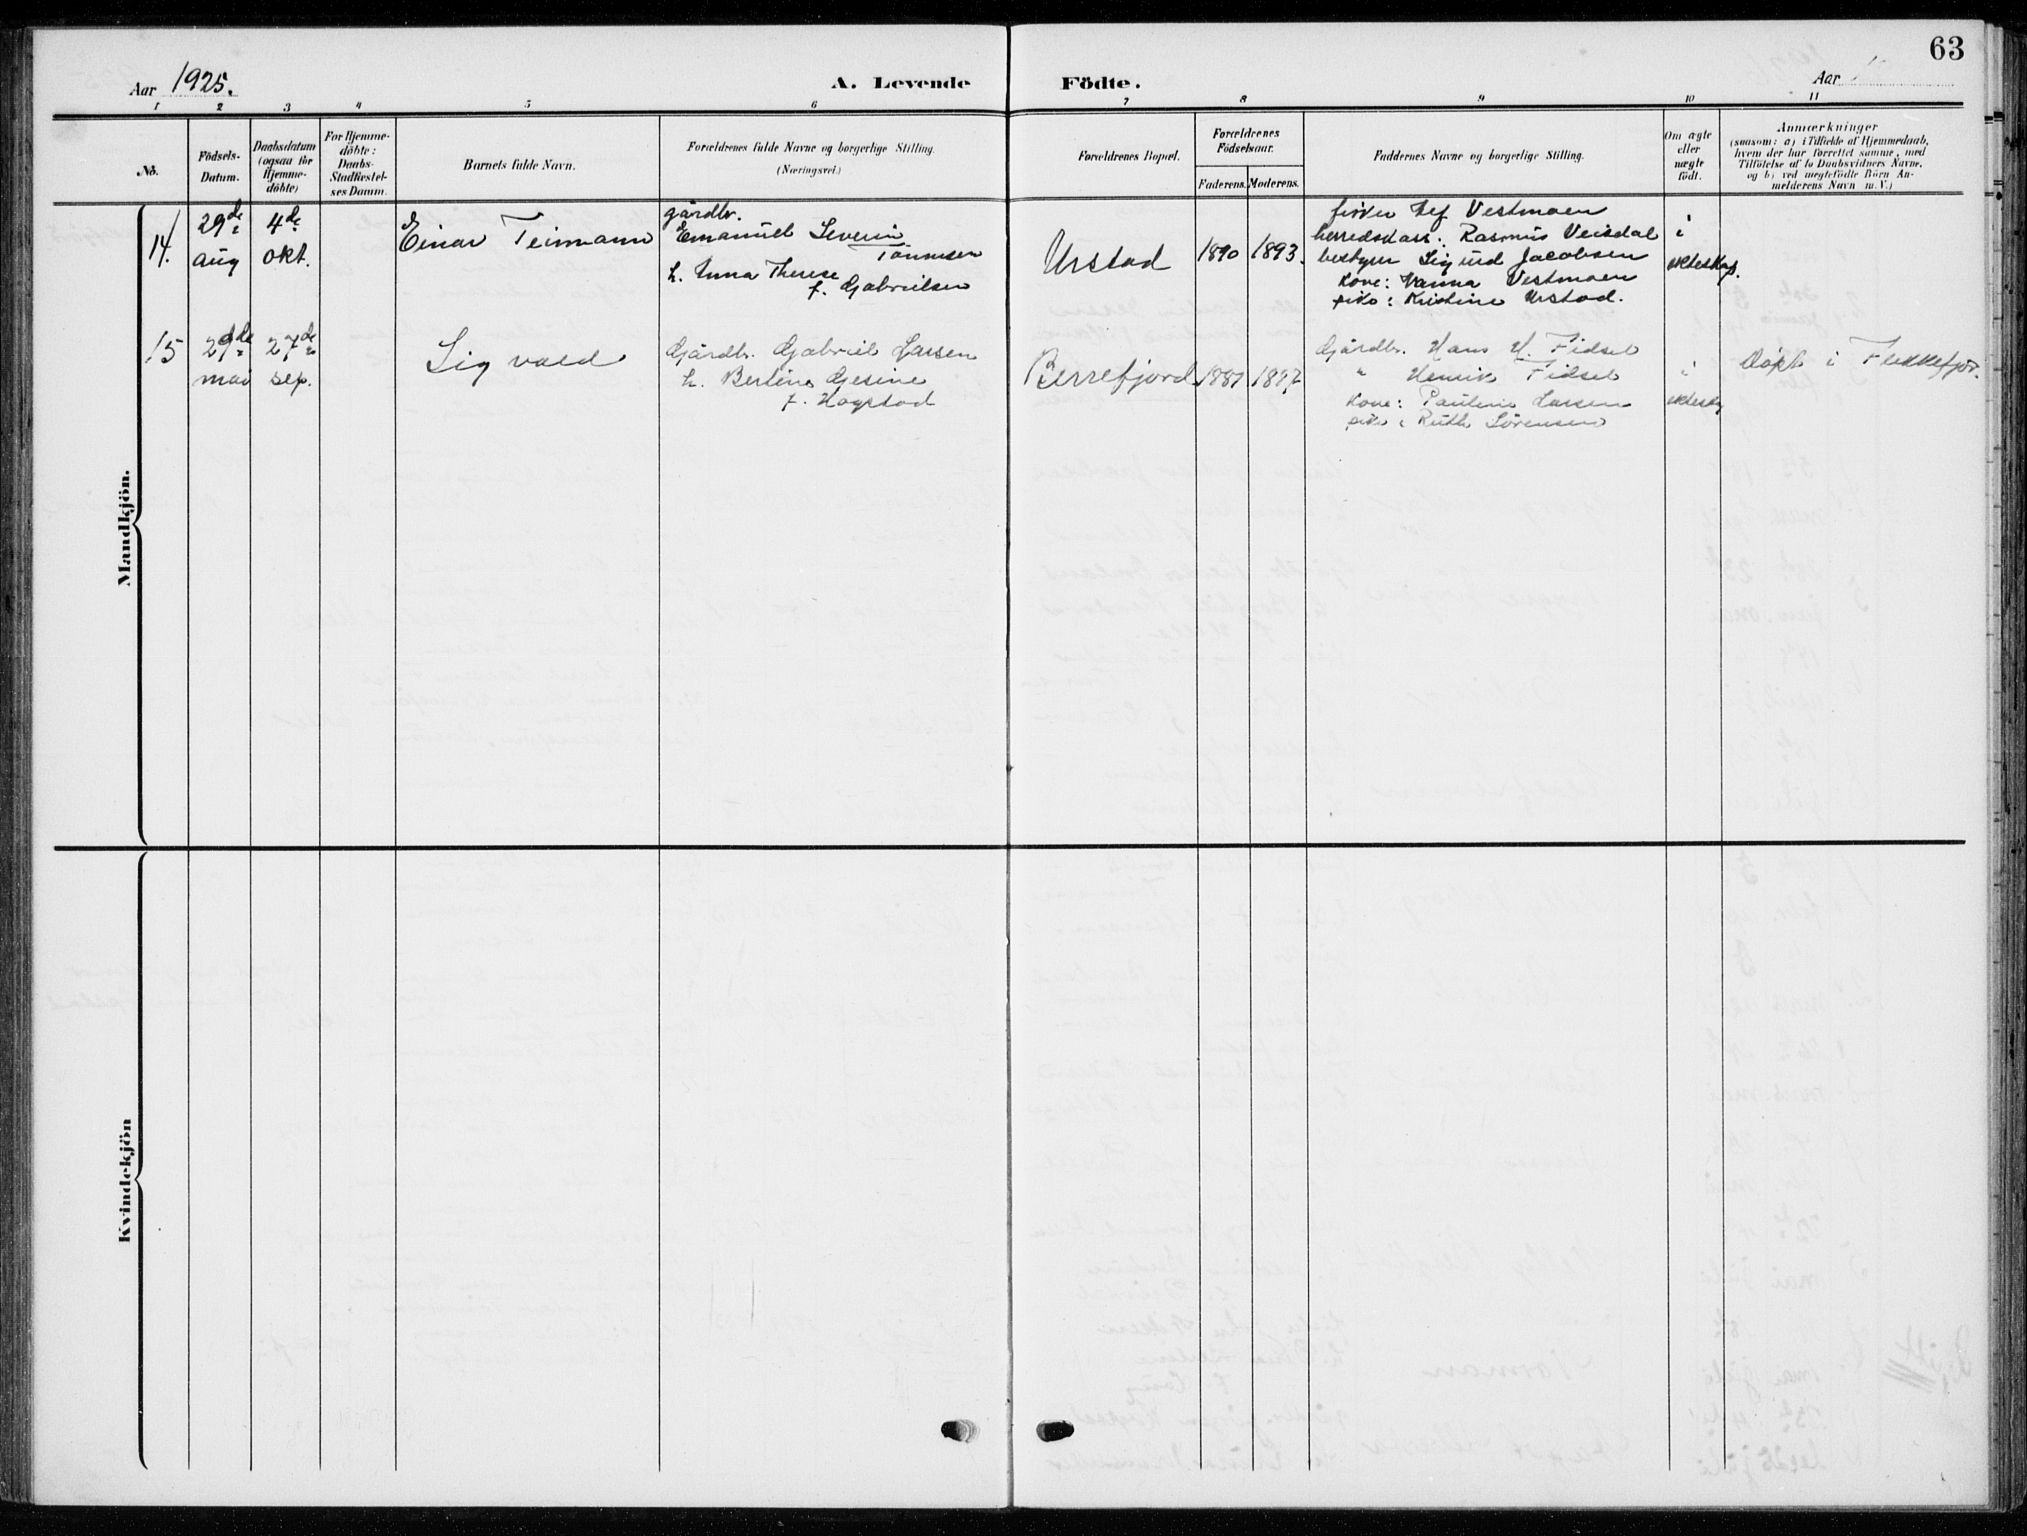 63
Aar 1925.
A. Levende Födte.
Aar
1 2 3 4 5 6 7 8 9 10 11
No.
Födsels-Datum.
Daabsdatum (ogsaa for Hjemme-döbte)
For Hjemme-döbte: Daabs-Stadfæstel-ses Datum.
Barnets fulde Navn.
Forældrenes fulde Navne og borgerlige Stilling.
(Næringsvei.)
Forældrenes Bopæl.
Forældrenes Födselsaar.
Faderens. Moderens.
Faddernes Navne og borgerlige Stilling.
Om ægte eller uægte födt.
Anmærkninger
(saasom: a) i Tilfælde af Hjemmedaab,
hvem der har forrettet samme, med
Tilföielse af to Daabsvidners Navne,
og b) ved uægtefödte Börn An-
melderens Navn m. V.)
Mandkjön.
14.
29de aug
4de okt.
Einar Teimann
gårdbr.
Emanuel Severin
Tønnesen
h. Anna Therese
f. Gabrielsen
Urstad
1890 1893.
fisker Vestmoen
herredskass. Rasmus Veisdal
bestyrer Sigurd Jacobsen
kone: Hanna Vestmoen
pike: Kristine Urstad.
i ekteskap.
15
29de mai
27de sep.
Sigvald
Gårdbr. Gabriel Larsen
h. Bertine Gesine
f. Hogstad
Berrefjord
1887 1897
Gårdbr. Hans H. Fidsel
" Henrik Fidsel
kone: Pauline Larsen
pike: Ruth Sørensen
i ektesk
Døpt i Flekkefjor.
Kvindekjön